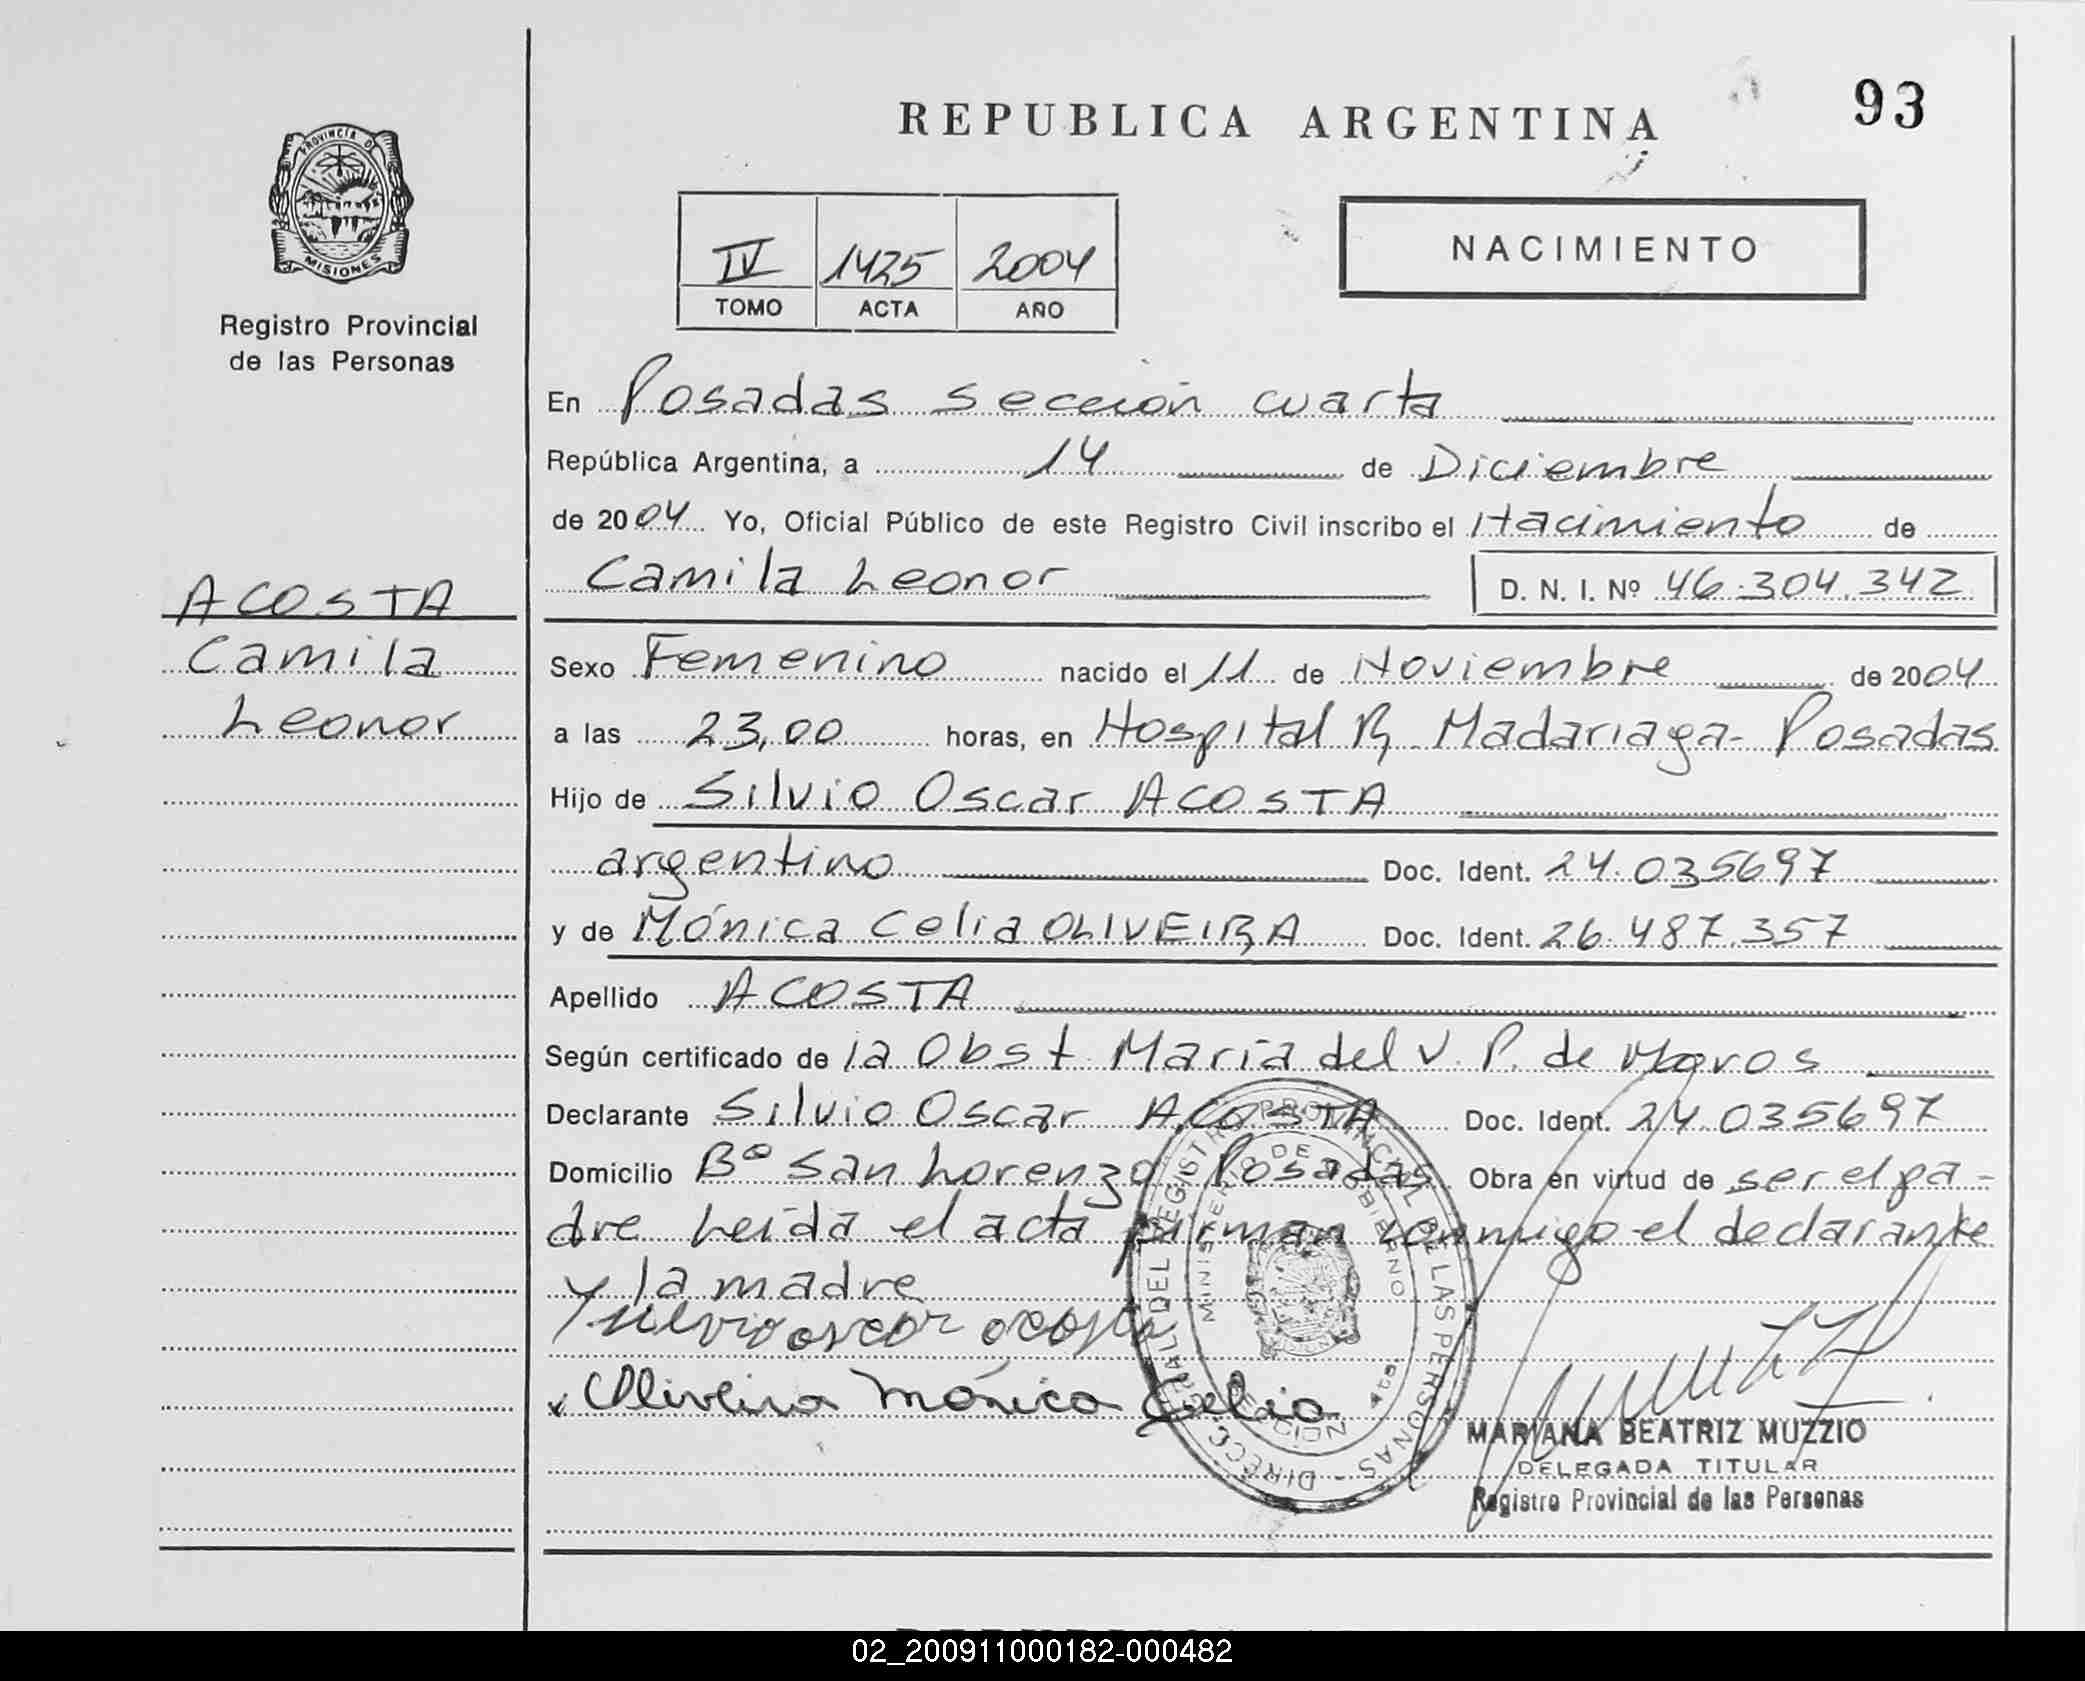 REPUBLICA ARGENTINA
93
PROVINCIA DE
MISIONES
Registro Provincial
de las Personas
IV 1425 2004
TOMO ACTA AÑO
NACIMIENTO
En Posadas sección cuarta
República Argentina, a 14 de Diciembre
de 2004 Yo, Oficial Público de este Registro Civil inscribo el Nacimiento de
Camila Leonor D. N. I. Nº 46.304.342
ACOSTA
Camila
Leonor
Sexo Femenino nacido el 11 de Noviembre de 2004
a las 23,00 horas, en Hospital R. Madariaga - Posadas
Hijo de Silvio Oscar ACOSTA
argentino Doc. Ident. 24.035697
y de Mónica Celia OLIVEIRA Doc. Ident. 26.487.357
Apellido ACOSTA
Según certificado de la Obst. María del V. P. de
Declarante Silvio Oscar ACOSTA Doc. Ident. 24.035697
Domicilio Bº San Lorenzo Posadas Obra en virtud de ser el pa-
dre Leída el acta firman conmigo el declarante
y la madre
Silvio oscar acosta
Oliveira Mónica Celia
DIRECC. GRAL. DEL REGISTRO PROVINCIAL DE LAS PERSONAS -
MINISTERIO DE GOBIERNO
MARIANA BEATRIZ MUZZIO
DELEGADA TITULAR
Registro Provincial de las Personas
02_200911000182-000482